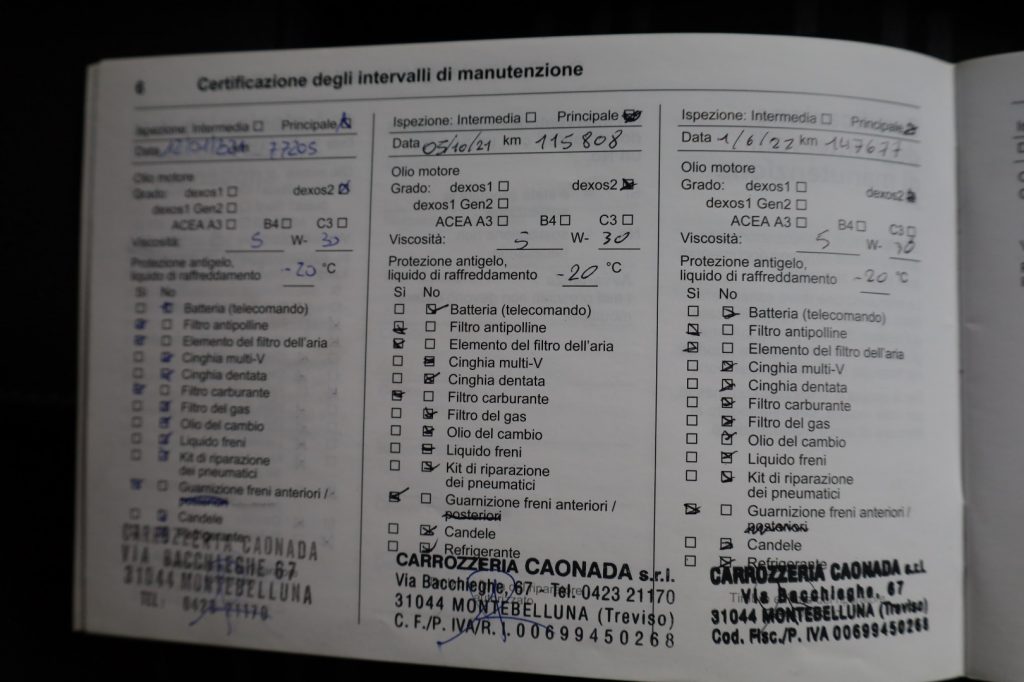 6 Certificazione degli intervalli di manutenzione
Ispezione: Intermedia Principale
Data 77205
Olio motore
Grado: dexos1 dexos2
dexos1 Gen2
ACEA A3 B4 C3
Viscosità: 5 W- 30
Protezione antigelo,
liquido di raffreddamento -20 °C
Sì No
Batteria (telecomando)
Filtro antipolline
Elemento del filtro dell'aria
Cinghia multi-V
Cinghia dentata
Filtro carburante
Filtro del gas
Olio del cambio
Liquido freni
Kit di riparazione
dei pneumatici
Guarnizione freni anteriori /
posteriori
Candele
Refrigerante
CARROZZERIA CAONADA
VIA BACCHIEGHE 67
31044 MONTEBELLUNA
TEL. 0423 21170
Ispezione: Intermedia Principale
Data 05/10/21 km 115808
Olio motore
Grado: dexos1 dexos2
dexos1 Gen2
ACEA A3 B4 C3
Viscosità: 5 W- 30
Protezione antigelo,
liquido di raffreddamento -20 °C
Sì No
Batteria (telecomando)
Filtro antipolline
Elemento del filtro dell'aria
Cinghia multi-V
Cinghia dentata
Filtro carburante
Filtro del gas
Olio del cambio
Liquido freni
Kit di riparazione
dei pneumatici
Guarnizione freni anteriori /
posteriori
Candele
Refrigerante
CARROZZERIA CAONADA s.r.l.
Via Bacchieghe, 67 - Tel 0423 21170
31044 MONTEBELLUNA (Treviso)
C. F./P. IVA/R. I. 00699450268
Ispezione: Intermedia Principale
Data 1/6/22 km 147677
Olio motore
Grado: dexos1 dexos2
dexos1 Gen2
ACEA A3 B4 C3
Viscosità: 5 W- 30
Protezione antigelo,
liquido di raffreddamento -20 °C
Sì No
Batteria (telecomando)
Filtro antipolline
Elemento del filtro dell'aria
Cinghia multi-V
Cinghia dentata
Filtro carburante
Filtro del gas
Olio del cambio
Liquido freni
Kit di riparazione
dei pneumatici
Guarnizione freni anteriori /
posteriori
Candele
Refrigerante
CARROZZERIA CAONADA s.r.l.
Via Bacchieghe, 67
31044 MONTEBELLUNA (Treviso)
Cod. Fisc./P. IVA 00699450268